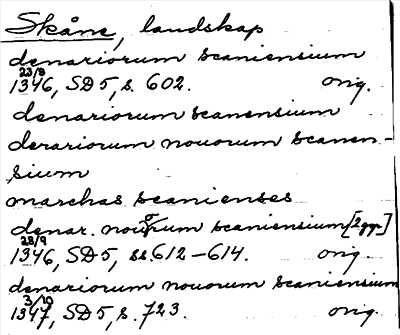 Skåne, landskap
denariorum scaniensium
23/8
1346, SD5, s. 602. orig.
denariorum scanensium
derariorum nouorum scanen-
sium
marchas scanienses
denar. nouorum scaniensium [2 ggr]
28/9
1346, SD5, ss 612-614. orig.
denariorum nouorum scaniensium
3/10
1347, SD5, s. 723. orig.